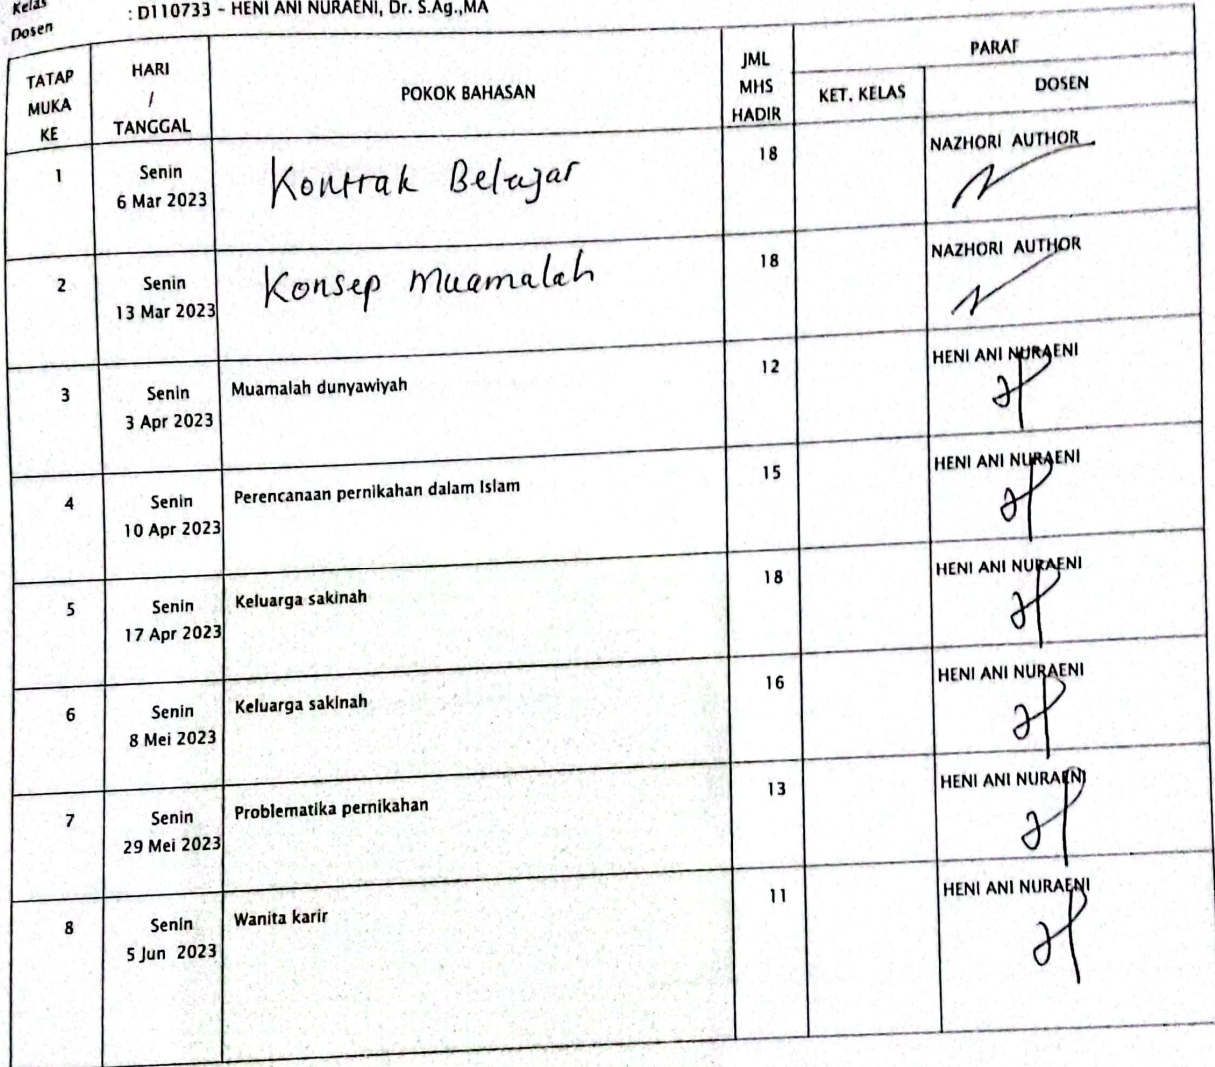 Kelas
Dosen : D110733 - HENI ANI NURAENI, Dr. S.Ag.,MA
TATAP MUKA KE
HARI / TANGGAL
POKOK BAHASAN
JML MHS HADIR
PARAF
KET. KELAS
DOSEN
1
Senin
6 Mar 2023
Kontrak Belajar
18
NAZHORI AUTHOR
2
Senin
13 Mar 2023
Konsep Muamalah
18
NAZHORI AUTHOR
3
Senin
3 Apr 2023
Muamalah dunyawiyah
12
HENI ANI NURAENI
4
Senin
10 Apr 2023
Perencanaan pernikahan dalam Islam
15
HENI ANI NURAENI
5
Senin
17 Apr 2023
Keluarga sakinah
18
HENI ANI NURAENI
6
Senin
8 Mei 2023
Keluarga sakinah
16
HENI ANI NURAENI
7
Senin
29 Mei 2023
Problematika pernikahan
13
HENI ANI NURAENI
8
Senin
5 Jun 2023
Wanita karir
11
HENI ANI NURAENI